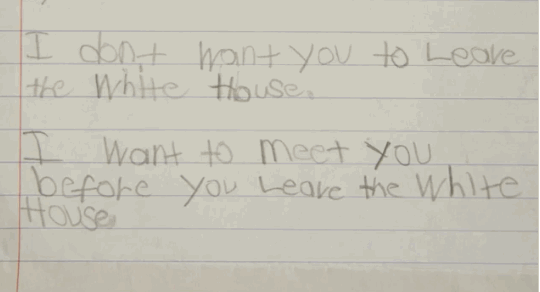 I don,t want you to Leave
the White House.
I want to meet you
before you Leave the White
House